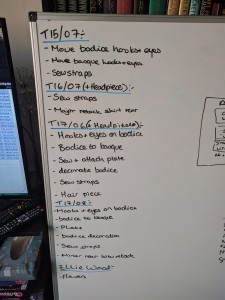 T15/07:-
- Move bodice hooks + eyes
- Move basque hooks + eyes
- Sew straps
T16/07 (+ Headpiece):-
- Sew straps
- Major retack skirt rear
T17/06 (+ Headpiece):-
- Hooks + eyes on bodice
- Bodice to basque
- Sew + attach plate
- decorate bodice
- Sew straps
- Hair piece
T17/08:-
- Hooks + eyes on bodice
- bodice to basque
- Plate
- bodice decoration
- Sew straps
- Minor rear skirt retack
Ellie Wood:-
- flowers